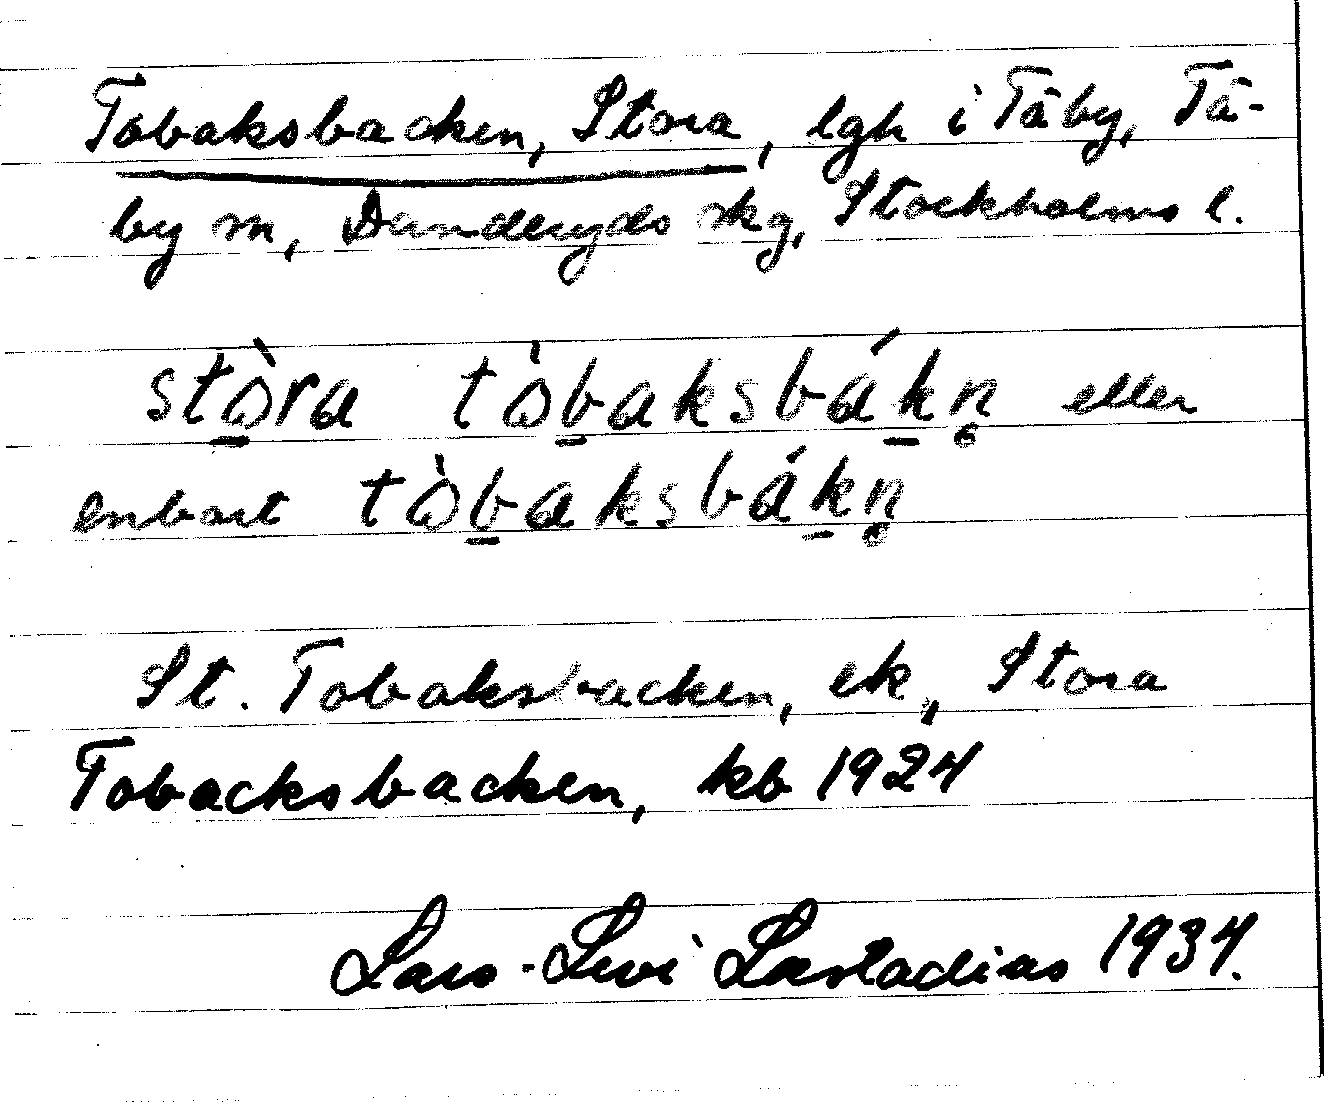 Tobaksbacken, Stora, lgh i Täby, Tä-
by sn, Danderyds skg, Stockholms l.
stò̠ra tòb̠aksbák̠n̥ eller
enbart tòb̠aksbák̠n̥
St. Tobaksbacken, ek, Stora
Tobacksbacken, kb 1924
Lars-Levi Læstadius 1934.